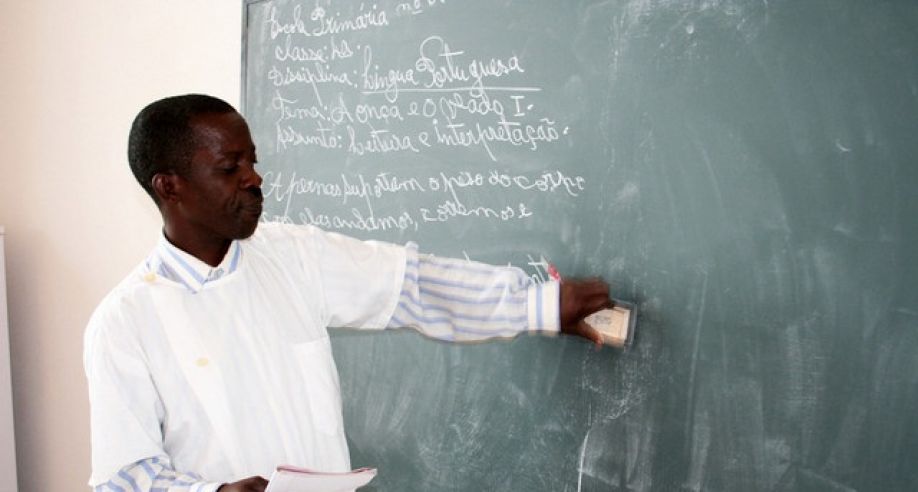 Escola Primária nº
classe:
Disciplina: Língua Portuguesa
Tema: A onça e o veado I.
Assunto: Leitura e interpretação.
A pernas suportam o peso do corpo
elas andamos, corremos e